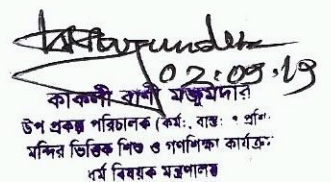 02.09.19
কাকলী রানী মজুমদার
উপ প্রকল্প পরিচালক (কর্ম:, বাস্ত:
মন্দির ভিত্তিক শিশু ও গণশিক্ষা কার্যক্র
ধর্ম বিষয়ক মন্ত্রণালয়